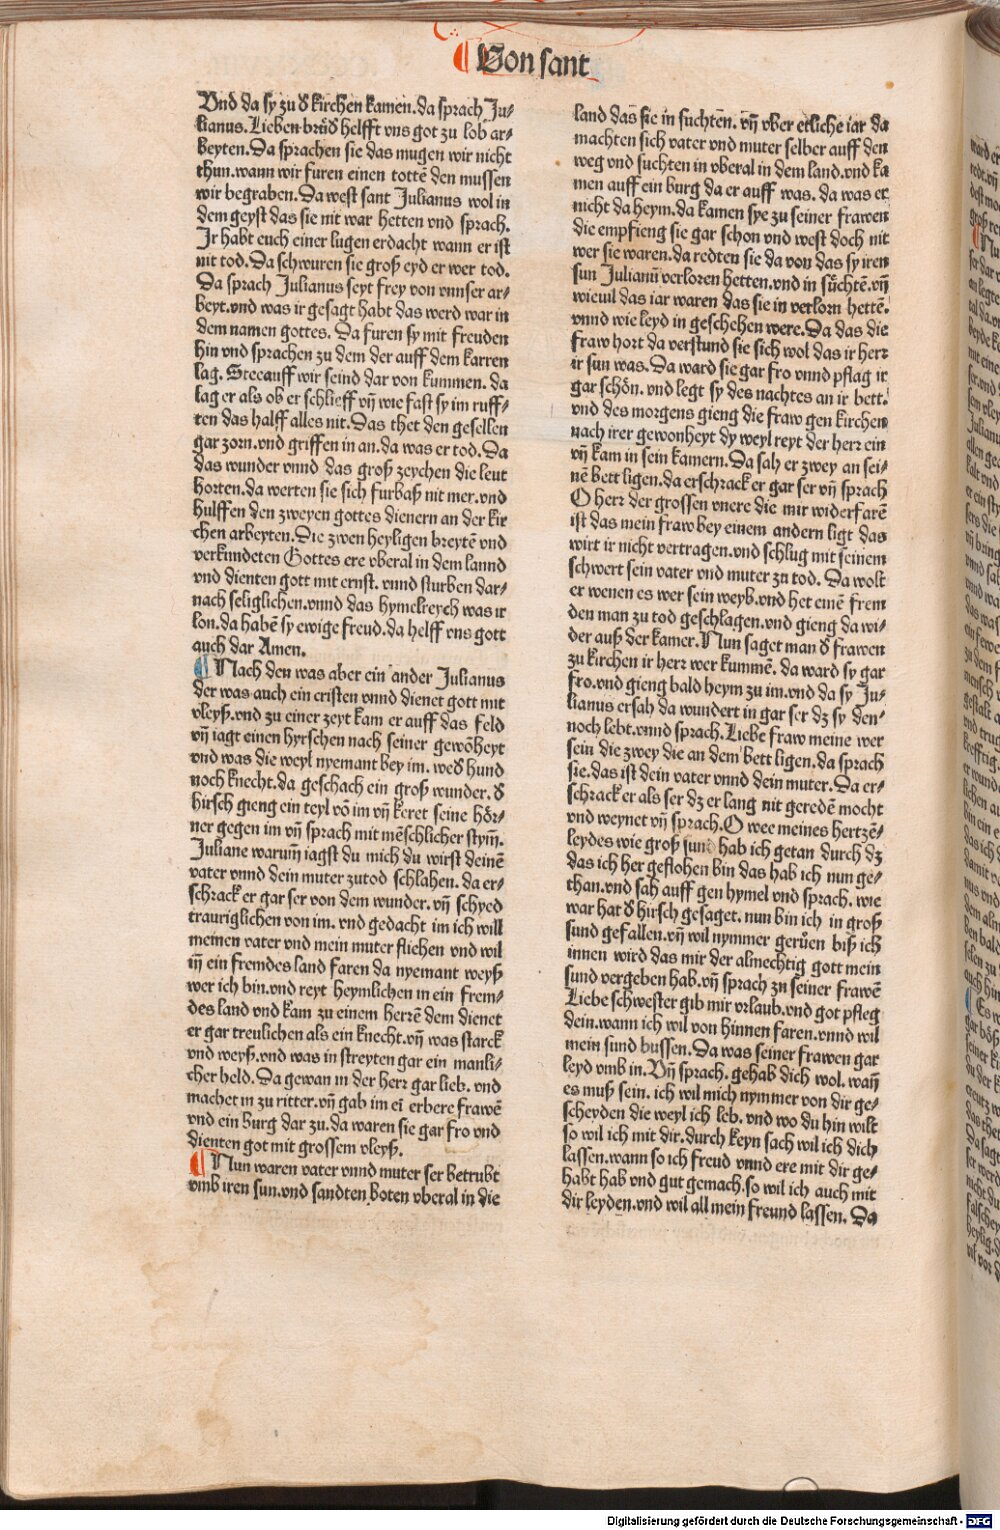 Von sant
Vnd da sy zu d̕ kirchen kamen. da sprach Ju⸗
lianus. Lieben brůd̕ helfft vns got zu lob ar⸗
beyten. Da sprachen sie das mugen wir nicht
thun. wann wir furen einen tottē den mussen
wir begraben. Da west sant Julianus wol in
dem geyst das sie nit war hetten vnd sprach.
Ir habt euch einer lugen erdacht wann er ist
nit tod. Da schwuren sie groß eyd er wer tod.
Da sprach Julianus seyt frey von vnnser ar⸗
beyt. vnd was ir gesagt habt das werd war in
dem namen gottes. Da furen sy mit freuden
hin vnd sprachen zu dem der auff dem karren
lag. Stee auff wir seind dar von kummen. da
lag er als ob er schlieff vñ wie fast sy im ruff⸗
ten das halff alles nit. Das thet den gesellen
gar zorn. vnd griffen in an. da was er tod. Da
das wunder vnnd das groß zeychen die leut
horten. da werten sie sich furbaß nit mer. vnd
hulffen den zweyen gottes dienern an der kir
chen arbeyten. Die zwen heyligen breytē vnd
verkundeten Gottes ere vberal in dem lannd
vnd dienten gott mit ernst. vnnd sturben dar⸗
nach seliglichen. vnnd das hymelreych was ir
lon. da habē sy ewige freud. da helff vns gott
auch dar Amen.
Nach den was aber ein ander Julianus
der was auch ein cristen vnnd dienet gott mit
vleyß. vnd zu einer zeyt kam er auff das feld
vñ iagt einen hyrschen nach seiner gewōheyt
vnd was die weyl nyemant bey im. wed̕ hund
noch knecht. da geschach ein groß wunder. d̕
hirsch gieng ein teyl vō im vñ keret seine hör⸗
ner gegen im vñ sprach mit mēschlicher stym̄.
Juliane warum̄ iagst du mich du wirst deinē
vater vnnd dein muter zutod schlahen. da er⸗
schrack er gar ser von dem wunder. vñ schyed
trauriglichen von im. vnd gedacht im ich will
meinen vater vnd mein muter fliehen vnd wil
in̄ ein fremdes land faren da nyemant weyß
wer ich bin. vnd reyt heymlichen in ein frem⸗
des land vnd kam zu einem herrē dem dienet
er gar treulichen als ein knecht. vñ was starck
vnd weyß. vnd was in streyten gar ein manli⸗
cher held. Da gewan in der herr gar lieb. vnd
machet in zu ritter. vñ gab im eī erbere frawē
vnd ein burg dar zu. da waren sie gar fro vnd
dienten got mit grossem vleyß.
Nun waren vater vnnd muter ser betrubt
vmb iren sun. vnd sandten boten vberal in die
land das sie in suchten. vñ vber etliche iar da
machten sich vater vnd muter selber auff den
weg vnd suchten in vberal in dem land. vnd ka
men auff ein burg da er auff was. da was er
nicht da heym. da kamen sye zu seiner frawen
die empfieng sie gar schon vnd west doch nit
wer sie waren. da redten sie da von das sy iren
sun Julianū verloren hetten. vnd in sůchtē. vñ
wieuil das iar waren das sie in verlorn hettē.
vnnd wie leyd in geschehen were. Da das die
fraw hort da verstund sie sich wol das ir herr
ir sun was. Da ward sie gar fro vnnd pflag ir
gar schön. vnd legt sy des nachtes an ir bett.
vnd des morgens gieng die fraw gen kirchen
nach irer gewonheyt dy weyl reyt der herr ein
vñ kam in sein kamern. Da sah er zwey an sei⸗
nē bett ligen. da erschrack er gar ser vñ sprach
O herr der grossen vnere die mir widerfarē
ist das mein fraw bey einem andern ligt das
wirt ir nicht vertragen. vnd schlug mit seinem
schwert sein vater vnd muter zu tod. Da wolt
er wenen es wer sein weyb. vnd het einē frem
den man zu tod geschlagen. vnd gieng da wi⸗
der auß der kamer. Nun saget man d̕ frawen
zu kirchen ir herr wer kummē. da ward sy gar
fro. vnd gieng bald heym zu im. vnd da sy Ju⸗
lianus ersah da wundert in gar ser dz sy den⸗
noch lebt. vnnd sprach. Liebe fraw meine wer
sein die zwey die an dem bett ligen. da sprach
sie. das ist dein vater vnnd dein muter. Da er⸗
schrack er als ser dz er lang nit geredē mocht
vnd weynet vñ sprach. O wee meines hertzē⸗
leydes wie groß sund hab ich getan durch dz
das ich her geflohen bin das hab ich nun ge⸗
than. vnd sah auff gen hymel vnd sprach. wie
war hat d̕ hirsch gesaget. nun bin ich in groß
sund gefallen. vñ wil nymmer gerůen biß ich
innen wird das mir der almechtig gott mein
sund vergeben hab. vñ sprach zu seiner frawē
Liebe schwester gib mir vrlaub. vnd got pfleg
dein. wann ich wil von hinnen faren. vnnd wil
mein sund bussen. Da was seiner frawen gar
leyd vmb in. Vñ sprach. gehab dich wol. wañ
es muß sein. ich wil mich nymmer von dir ge⸗
scheyden die weyl ich leb. vnd wo du hin wilt
so wil ich mit dir. durch keyn sach wil ich dich
lassen. wann so ich freud vnnd ere mit dir ge⸗
habt hab vnd gut gemach. so wil ich auch mit
dir leyden. vnd wil all mein freund lassen. Da
Digitalisierung gefördert durch die Deutsche Forschungsgemeinschaft - DFG